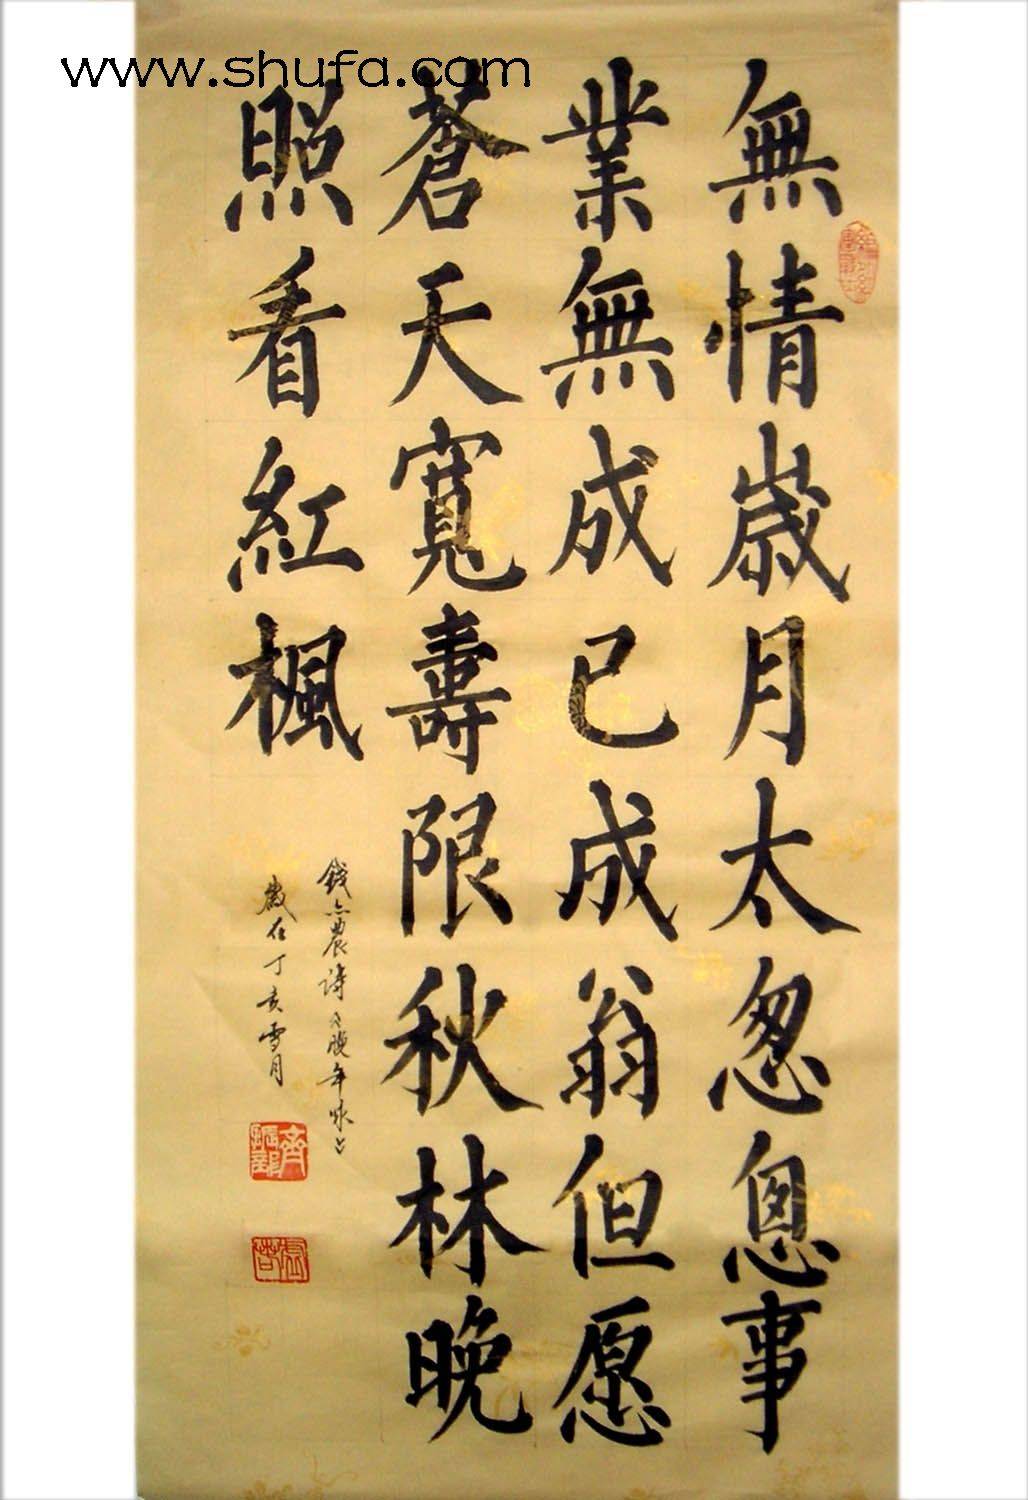 www.shufa.com
無情歲月太忽怱事
業無成已成翁但愿
蒼天寬壽限秋林晚
照看紅楓
錢詩晚年咏
歲在丁亥雪月